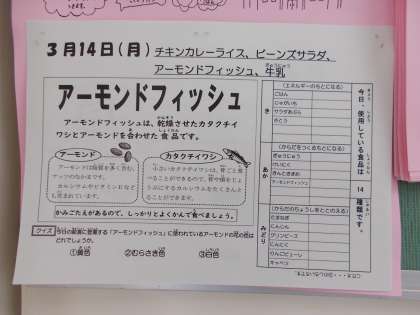 3月14日(月) チキンカレーライス、ビーンズサラダ、
アーモンドフィッシュ、牛乳
アーモンドフィッシュ
アーモンドフィッシュは、乾燥させたカタクチイ
ワシとアーモンドを合わせた食品です。
アーモンド
カタクチイワシ
カルシウムやビタミンなども含まれています。
小さいカタクチイワシは、骨ごと食
べることができるので、骨や歯をじょ
うぶにするカルシウムをたくさんと
ることができます。
かみごたえがあるので、しっかりとよくかんで食べましょう。
クイズ 今日の給食に登場する「アーモンドフィッシュ」に使われているアーモンドの花の色は
どれでしょうか。
①黄色 ②むらさき色 ③白色
今日、使用している食品は 14 種類です。
き
(エネルギーのもとになる)
ごはん
じゃがいも
サラダあぶら
さとう
あか
(からだをつくるもとになる)
ぎゅうにゅう
だいず
アーモンドフィッシュ
みどり
(からだのちょうしをととのえる)
たまねぎ
にんじん
グリンピース
にんにく
りんごピューレ
キャベツ